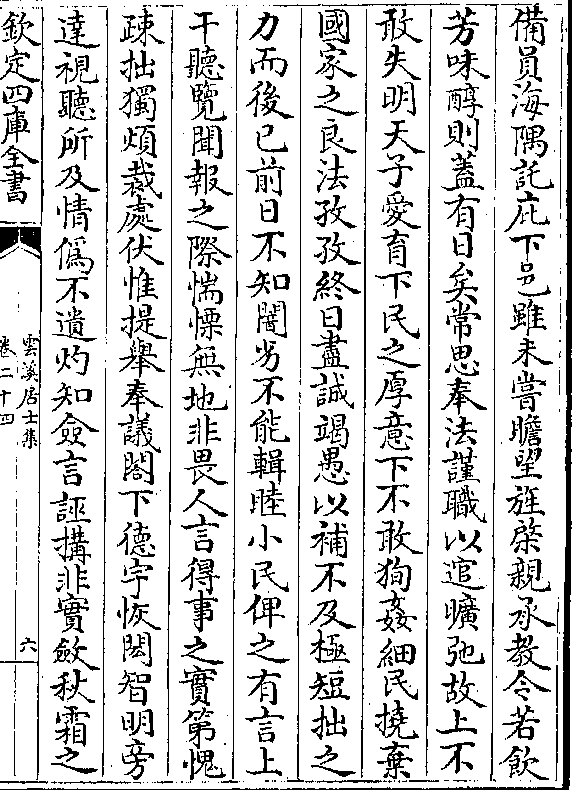 備員海隅託庇下邑雖未嘗瞻望旌棨親承教令若飲
芳味醇則蓋有日矣常思奉法謹職以逭曠弛故上不
敢失明天子愛育下民之厚意下不敢狥姦細民撓棄
國家之良法孜孜終日盡誠竭愚以補不及極短拙之
力而後已前日不知闇劣不能輯睦小民俾之有言上
干聽覽聞報之際惴慄無地非畏人言得事之實第愧
疎拙獨煩裁處伏惟提舉奉議閣下德宇恢閎智明旁
達視聽所及情僞不遺灼知僉言誣搆非實斂秋霜之
欽定四庫全書
雲溪居士集
卷二十四
六